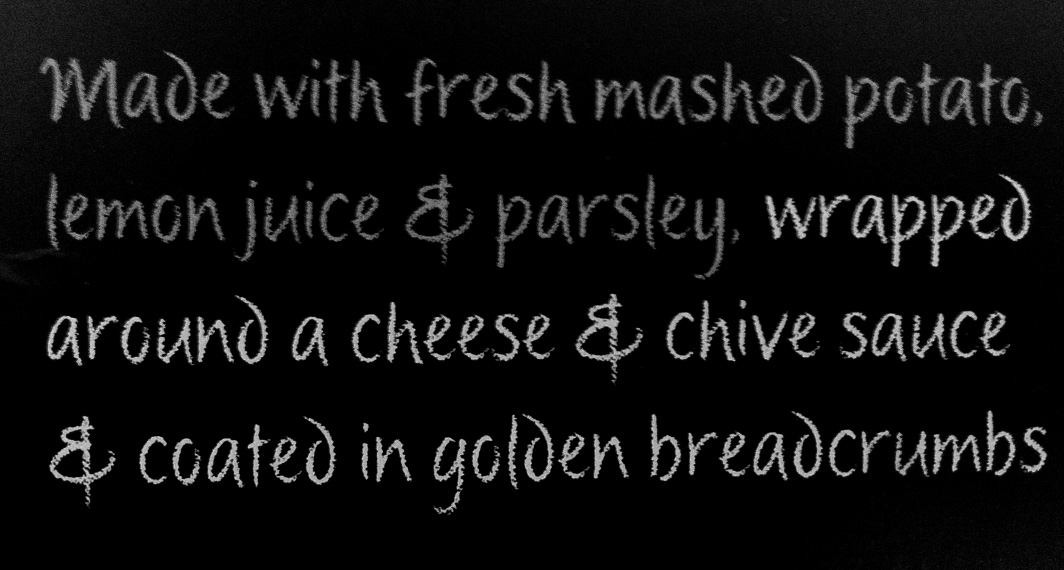 Made with fresh mashed potato,
lemon juice & parsley, wrapped
around a cheese & chive sauce
& coated in golden breadcrumbs